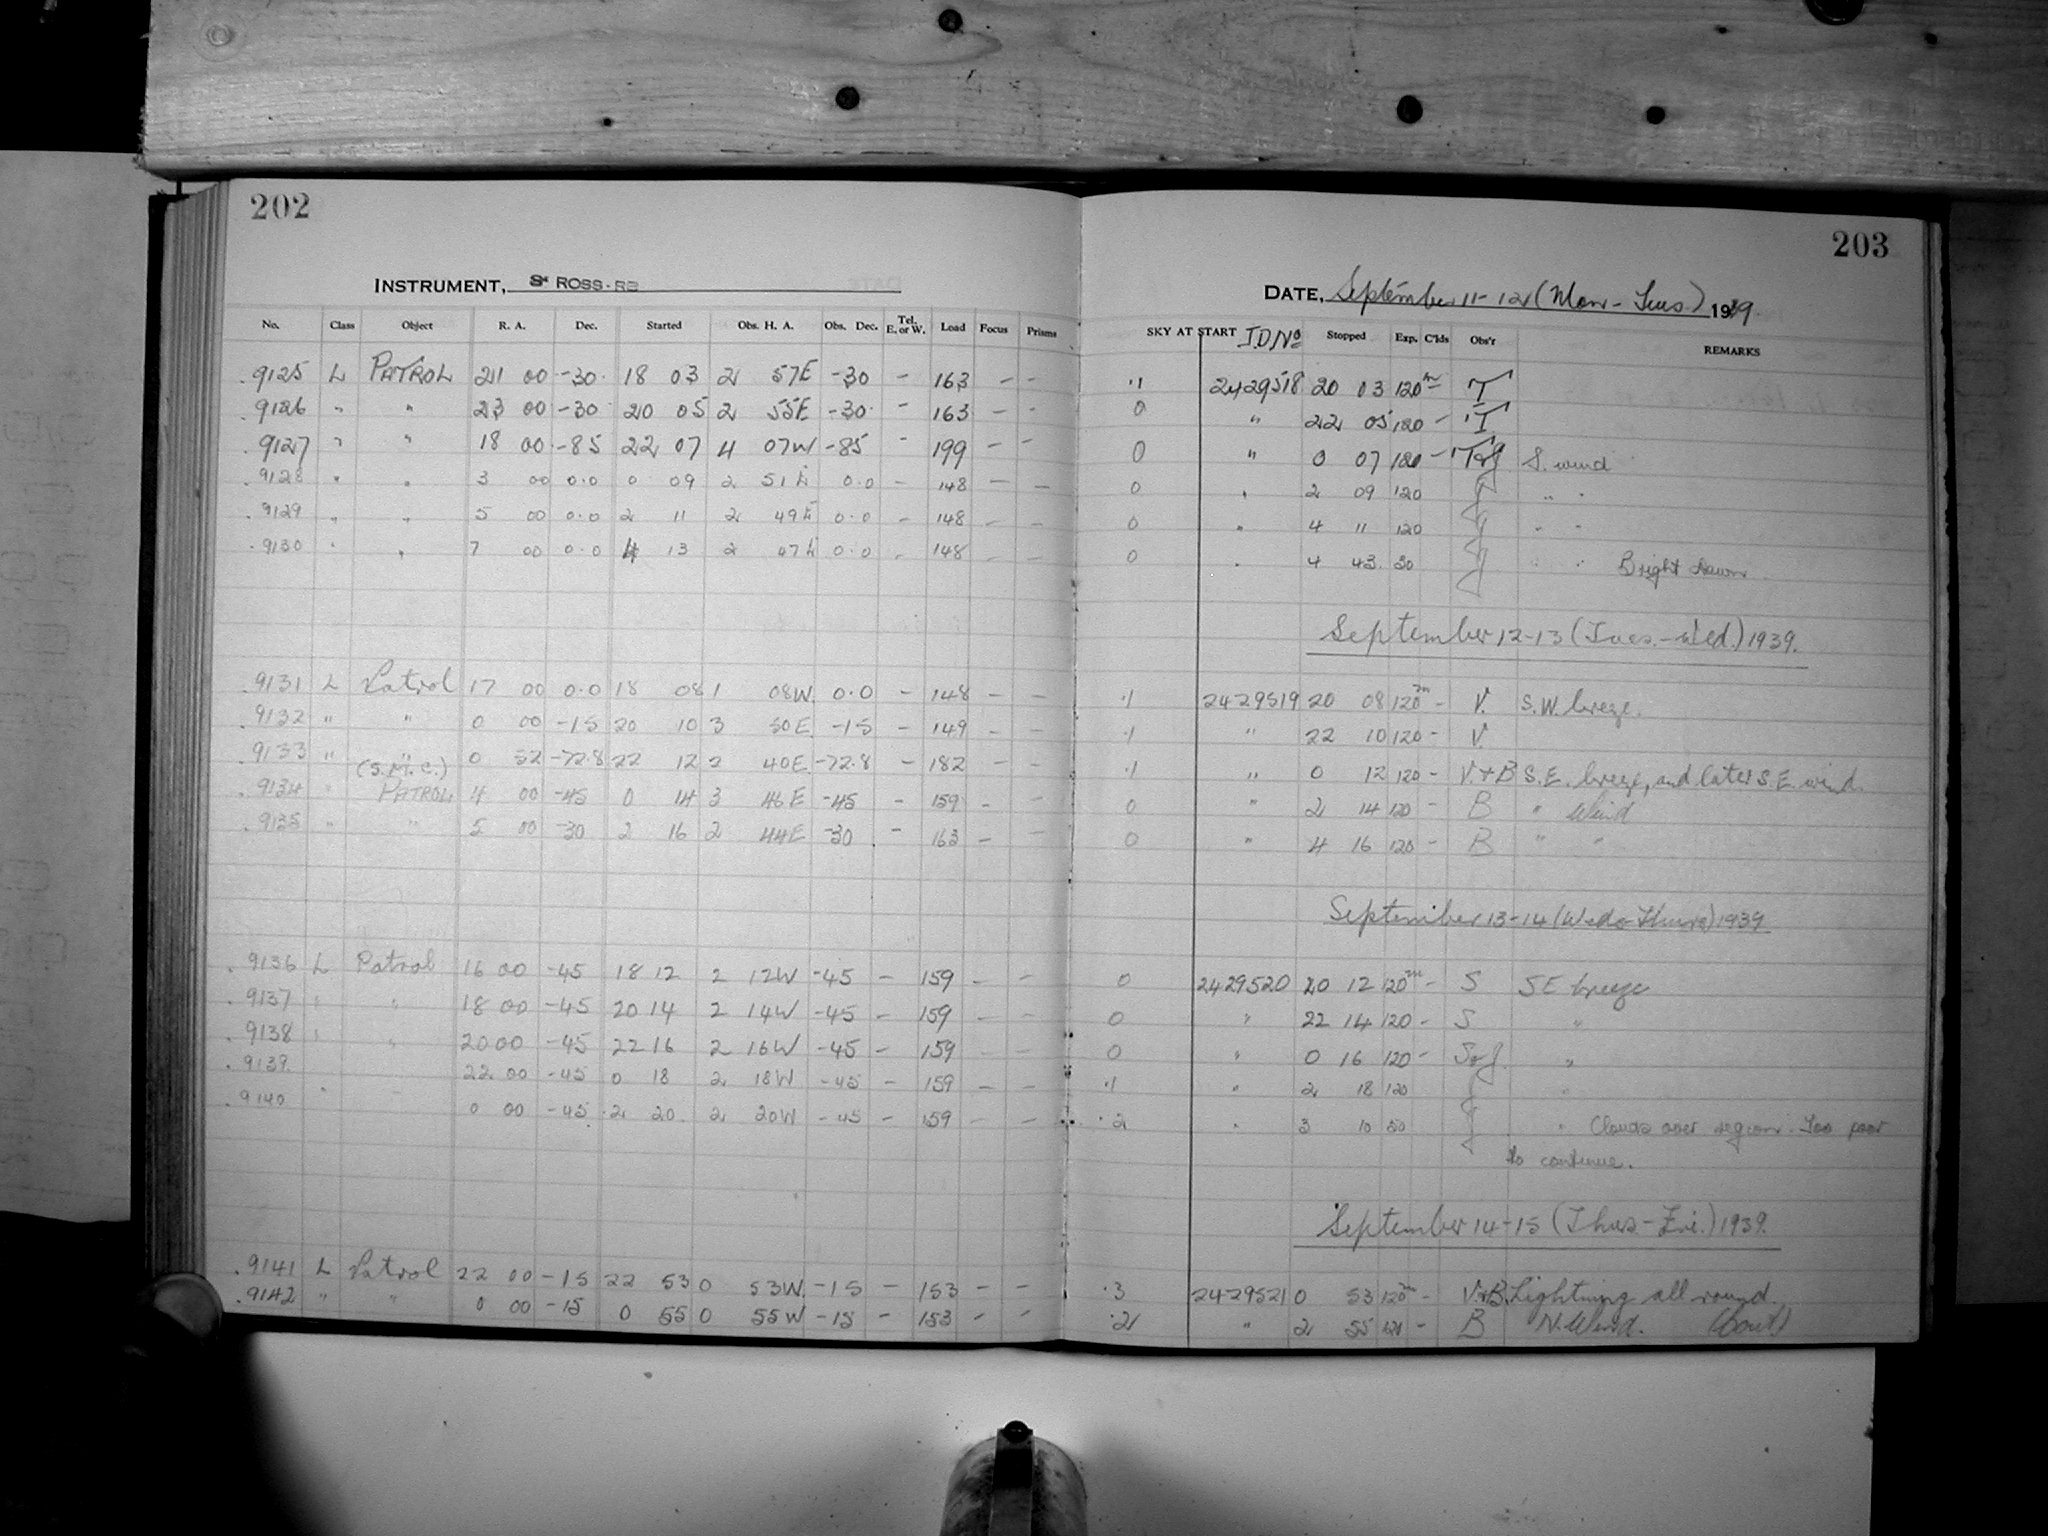 202
203
INSTRUMENT, ROSS-RB
DATE, September 11-12 (Mon-Tues) 1939
No. Class Object R. A. Dec. Started Obs. H. A. Obs. Dec. Tel. E. or W. Load Focus Prisms SKY AT START J.D. No Stopped Exp. C'lds Obs'r REMARKS
9125 L PATROL 21 00 -30 18 03 2 57E -30 - 163 - - .1 2429518 20 03 120m T
9126 " " 23 00 -30 20 05 2 55E -30 - 163 - - 0 " 22 05 120 - T
9127 " " 18 00 -85 22 07 4 07W -85 - 199 - - 0 " 0 07 120 - S. wind
9128 " " 3 00 0.0 0 09 2 51E 0.0 - 148 - - 0 " 2 09 120 J " "
9129 " " 5 00 0.0 2 11 2 49E 0.0 - 148 - - 0 " 4 11 120 J " "
9130 " " 7 00 0.0 4 13 2 47E 0.0 - 148 - - 0 " 4 43 30 J " " Bright dawn
September 12-13 (Tues.-Wed.) 1939.
9131 L Patrol 17 00 0.0 18 08 1 08W. 0.0 - 148 - - .1 2429519 20 08 120m - V. S.W. breeze.
9132 " " 0 00 -15 20 10 3 50E -15 - 149 - - .1 " 22 10 120 - V.
9133 " " (S.M.C.) 0 52 -72.8 22 12 2 40E -72.8 - 182 - - .1 " 0 12 120 - V.+B S.E. breeze, and later S.E. wind.
9134 " PATROL 4 00 -45 0 14 3 46E -45 - 159 - - 0 " 2 14 120 - B " Wind
9135 " " 5 00 -30 2 16 2 44E -30 - 163 - - 0 " 4 16 120 - B " "
September 13-14 (Wed-Thurs) 1939
9136 L Patrol 16 00 -45 18 12 2 12W -45 - 159 - - 0 2429520 20 12 120m - S SE breeze
9137 " " 18 00 -45 20 14 2 14W -45 - 159 - - 0 " 22 14 120 - S "
9138 " " 20 00 -45 22 16 2 16W -45 - 159 - - 0 " 0 16 120 - S+J "
9139 " " 22 00 -45 0 18 2 18W -45 - 159 - - .1 " 2 18 120 J "
9140 0 00 -45 2 20 2 20W -45 - 159 - - .2 " 3 10 50 J " Clouds over region. Too poor
to continue.
September 14-15 (Thurs-Fri.) 1939.
9141 L Patrol 22 00 -15 22 53 0 53W. -15 - 153 - - .3 2429521 0 53 120m - V+B. Lightning all round.
9142 " " 0 00 -15 0 55 0 55W -15 - 153 - - .2 " 2 55 120 - B N. Wind. (Cont)